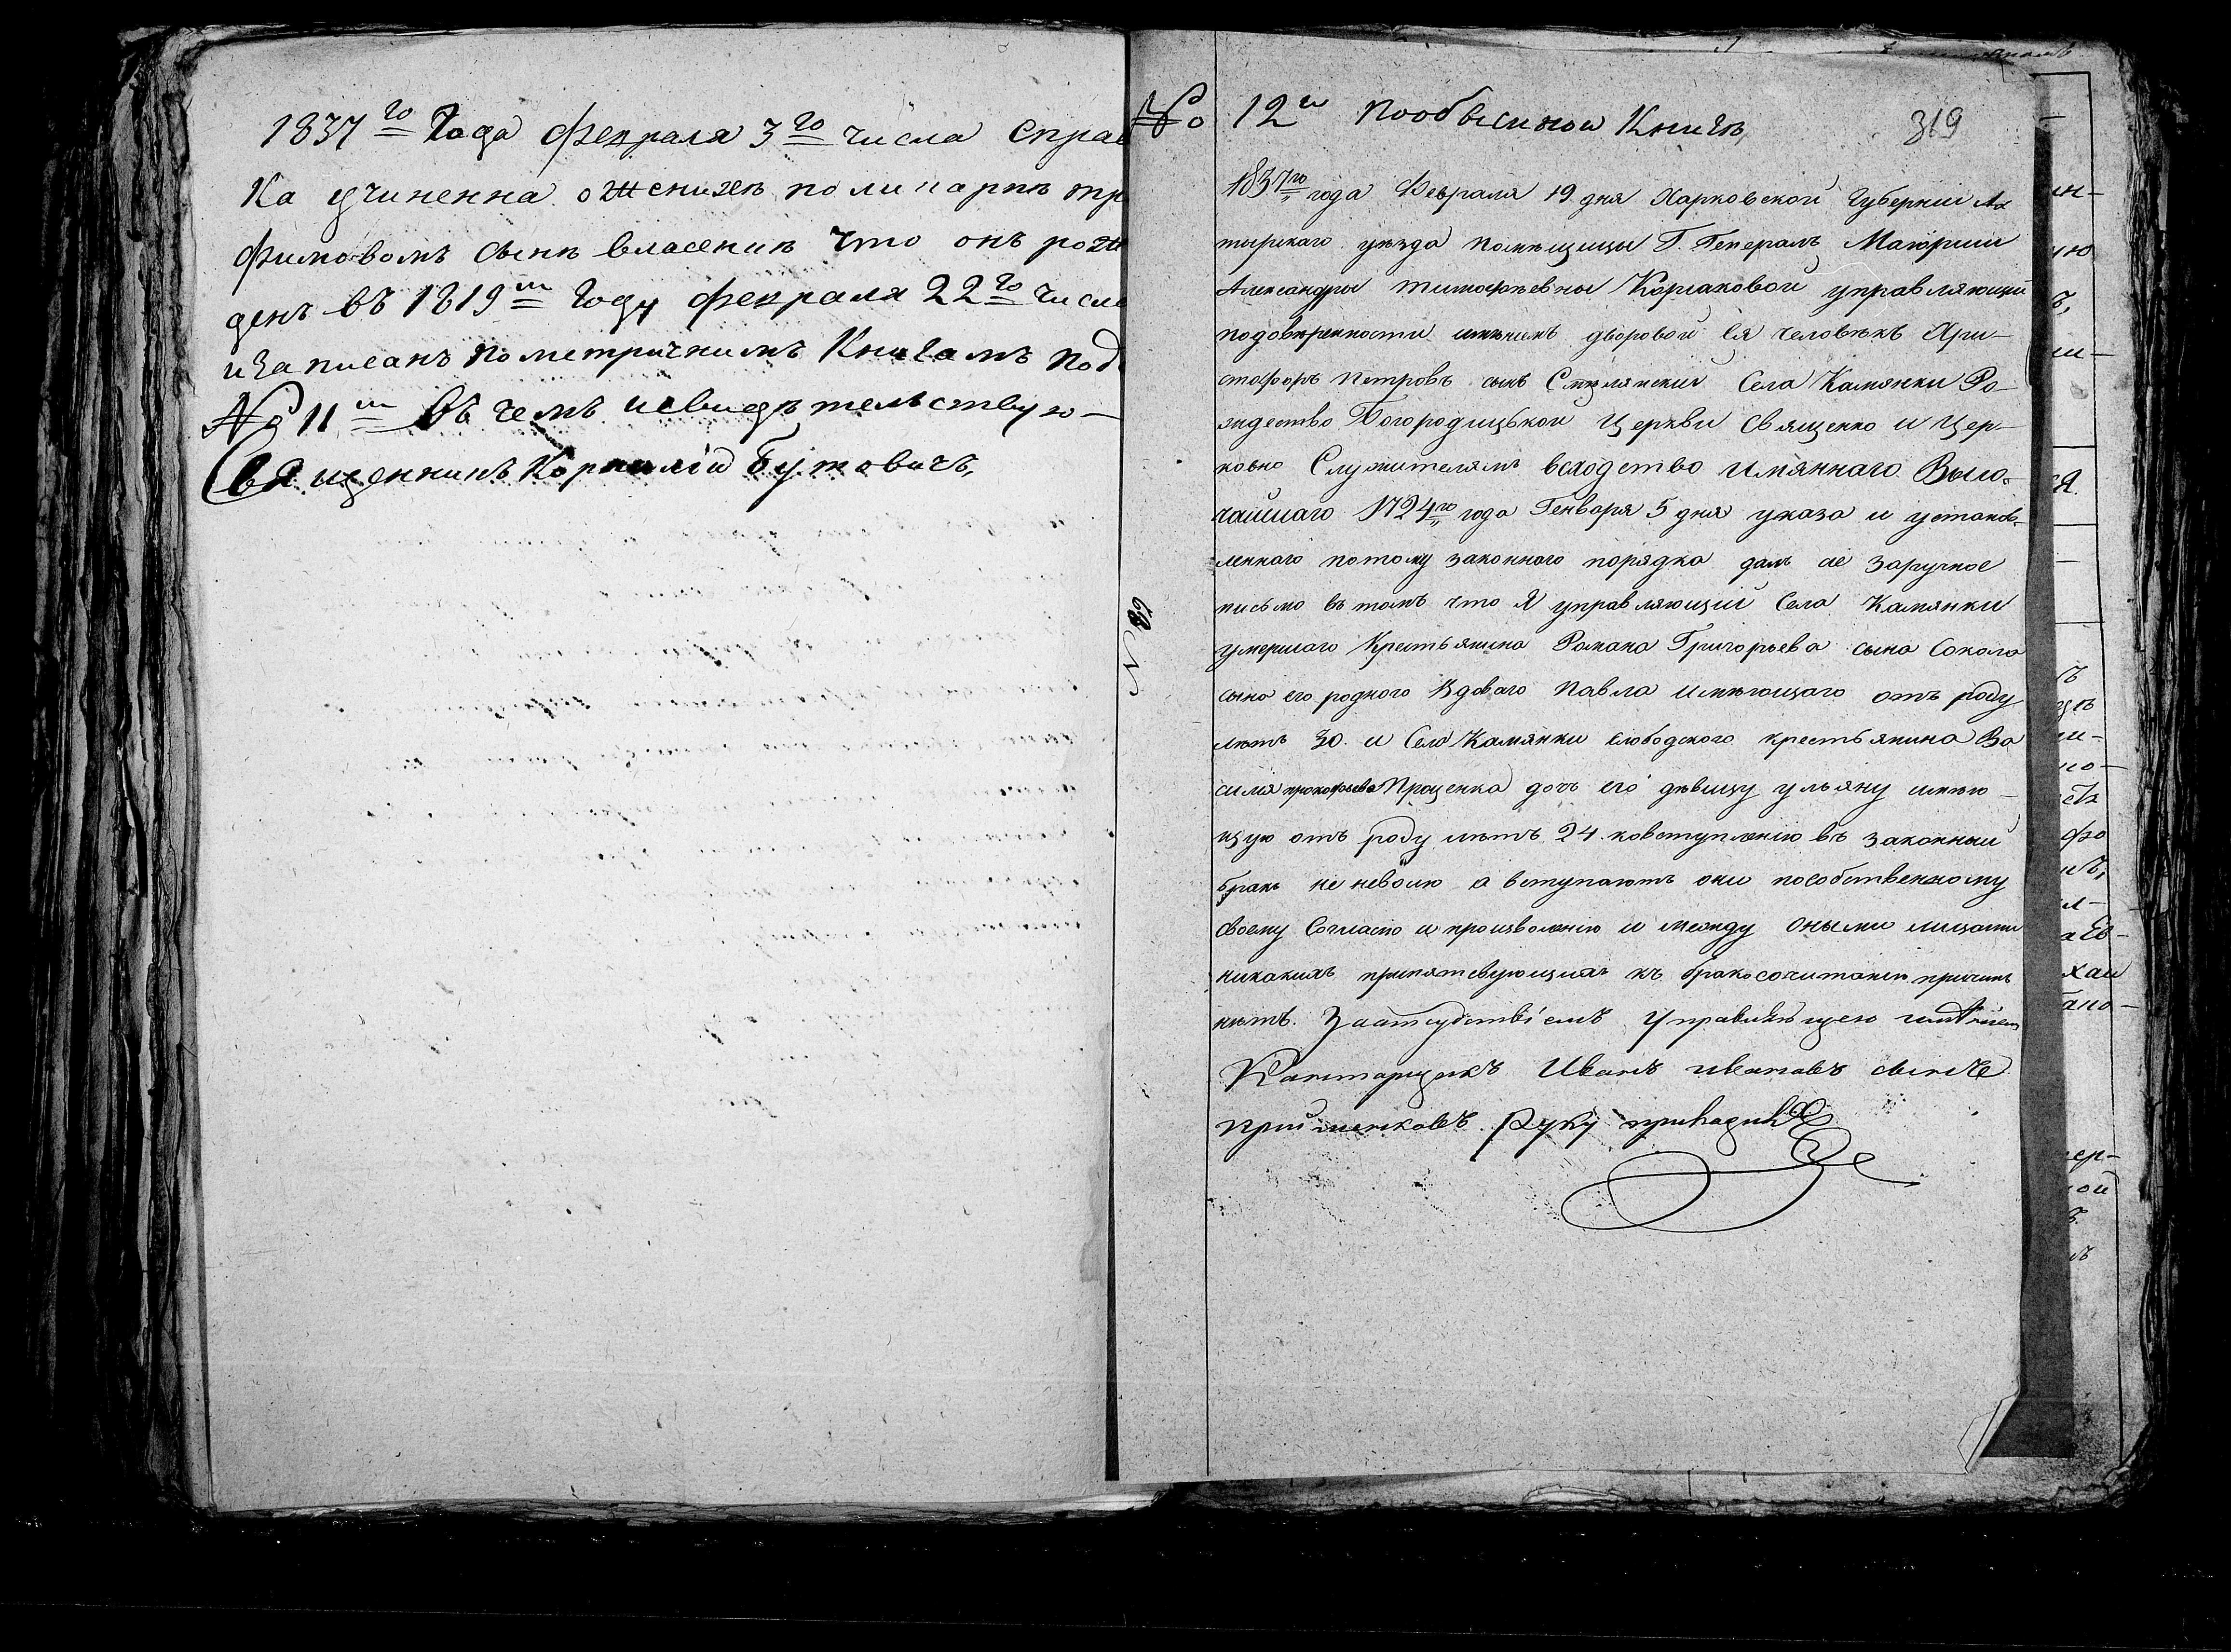 1837го Года февраля 3го числа Справ
ка учиненна о женихе поликарпе тро
фимовомъ сыне власенке что онъ рож
денъ въ 1819м Году февраля 22го числа
и записанъ пометрическимъ Книгамъ под
№ 11м въ чемъ исвидетельствую
Священникъ Корнилий Бутковичъ
№ 12й Пообыскной Книгѣ,
319
1837го года Февраля 19 дня Харковской Губернии Ах
тырскаго уѣзда помѣщицы Г. Генералъ Маіорши
Александры тимофѣевны Корсаковой управляющий
подовѣренности имѣнiемъ дворовой ея человѣкъ Хри-
стофоръ Петровъ сынъ Смелянский Села Камянки Ро
ждество Богородицькой Церкви Священно и Цер-
ковно Служителямъ всходство имяннаго Высо-
чайшаго 1724го года Генваря 5 дня указа и установ-
леннаго потому законного порядка далъ сіе заручное
письмо въ томъ что я управляющий Села Камянки
умершаго Крестьянина Романа Григорьева сына Сокола
сына его родного Вдоваго Павла имѣющаго отъ роду
лѣтъ 30. и Села Камянки слободского крестьянина Ва
силія прокофьева Проценка дочь его дѣвицу ульяну имѣю-
щую отъ роду лѣтъ 24. ковступленію въ законный
бракъ не неволю а вступаютъ они пособственному
своему Согласію и произволенію и между оными лицами
никакихъ препятсвующихъ къ бракосочитанію причинъ
нѣтъ. Заатсудствіемъ Управляющего имѣнiем
Кантарщикъ Иванъ ивановъ сынъ
Прийменковъ. Руку приложилъ